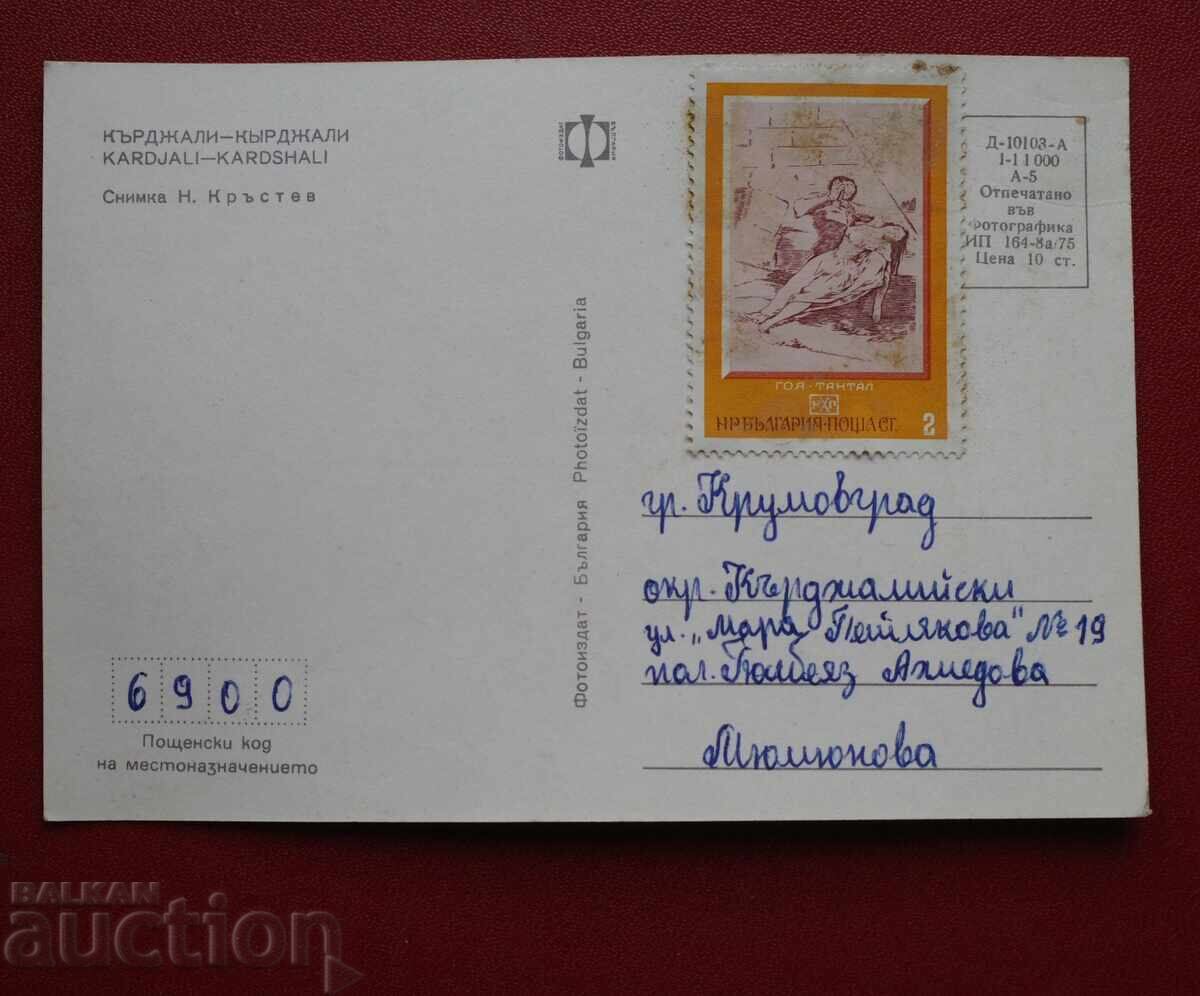 КЪРДЖАЛИ—КЫРДЖАЛИ
KARDJALI—KARDSHALI
Снимка Н. Кръстев
ФОТОИЗДАТ
БЪЛГАРИЯ
Фотоиздат - България Photoïzdat - Bulgaria
ГОЯ·ТАНТАЛ
НР БЪЛГАРИЯ·ПОЩА СТ. 2
Д-10103-А
1-11000
А-5
Отпечатано
във
Фотографика
ИП 164-8а/75
Цена 10 ст.
гр. Крумовград
окр. Кърджалийски
ул. „Мара Петлякова" № 19
пол. Гюлбеяз Ахмедова
Мюмюнова
6900
Пощенски код
на местоназначението
BALKAN
auction